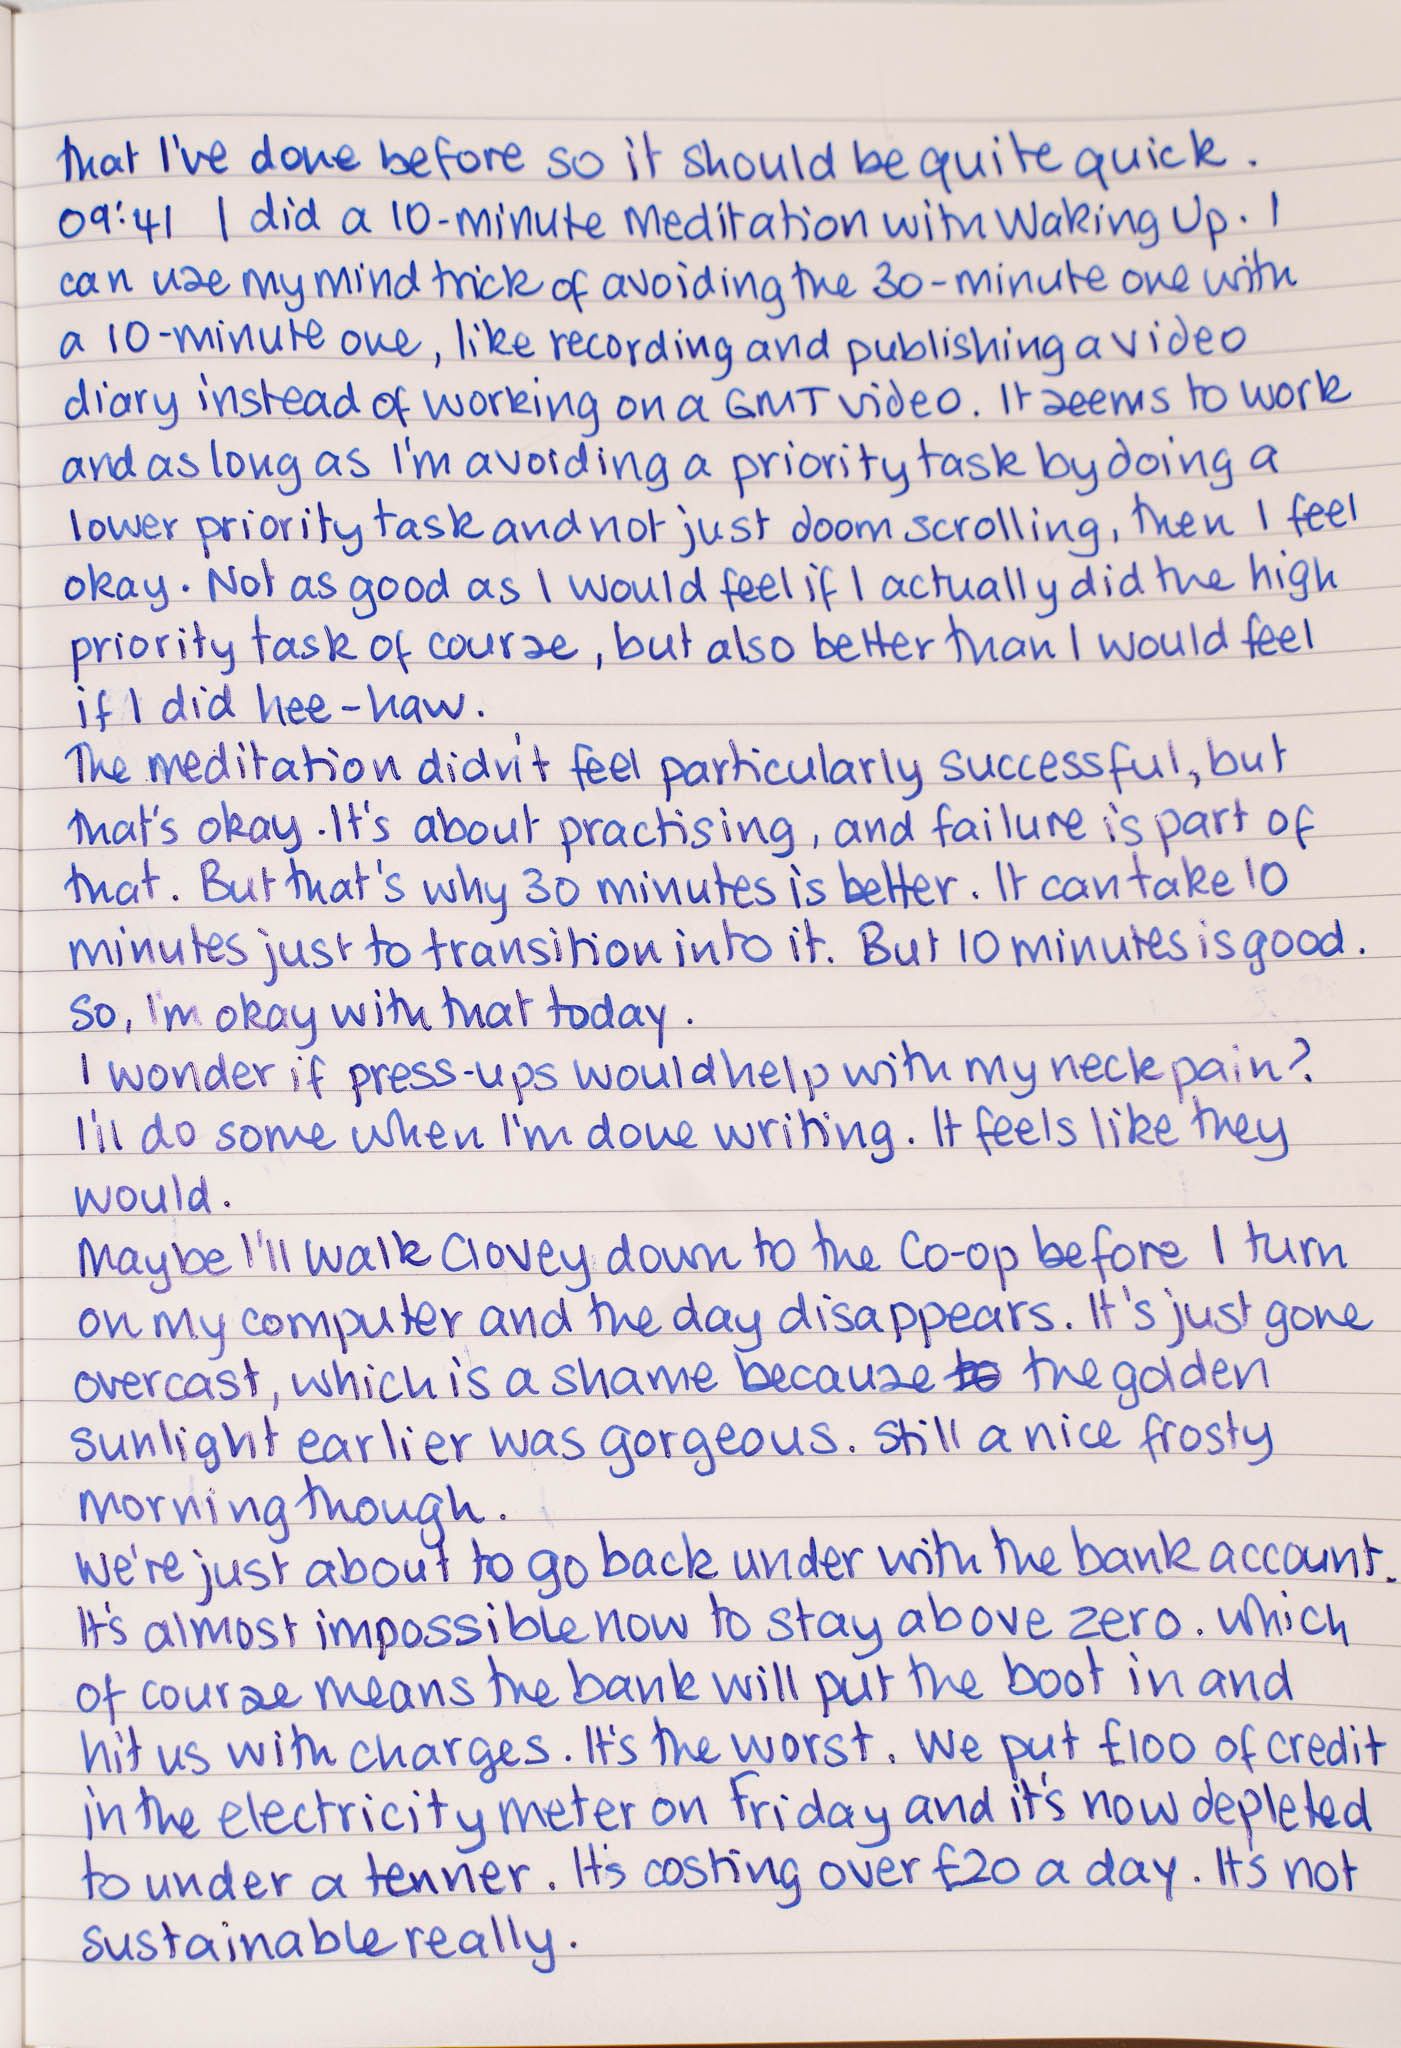 that I've done before so it should be quite quick.
09:41 I did a 10-minute meditation with Waking Up. I
can use my mind trick of avoiding the 30-minute one with
a 10-minute one, like recording and publishing a video
diary instead of working on a GMT video. It seems to work
and as long as I'm avoiding a priority task by doing a
lower priority task and not just doom scrolling, then I feel
okay. Not as good as I would feel if I actually did the high
priority task of course, but also better than I would feel
if I did hee-haw.
The meditation didn't feel particularly successful, but
that's okay. It's about practising, and failure is part of
that. But that's why 30 minutes is better. It can take 10
minutes just to transition into it. But 10 minutes is good.
So, I'm okay with that today.
I wonder if press-ups would help with my neck pain?
I'll do some when I'm done writing. It feels like they
would.
Maybe I'll walk Clovey down to the Co-op before I turn
on my computer and the day disappears. It's just gone
overcast, which is a shame because to the golden
sunlight earlier was gorgeous. Still a nice frosty
morning though.
We're just about to go back under with the bank account.
It's almost impossible now to stay above zero. Which
of course means the bank will put the boot in and
hit us with charges. It's the worst. We put £100 of credit
in the electricity meter on Friday and it's now depleted
to under a tenner. It's costing over £20 a day. It's not
sustainable really.